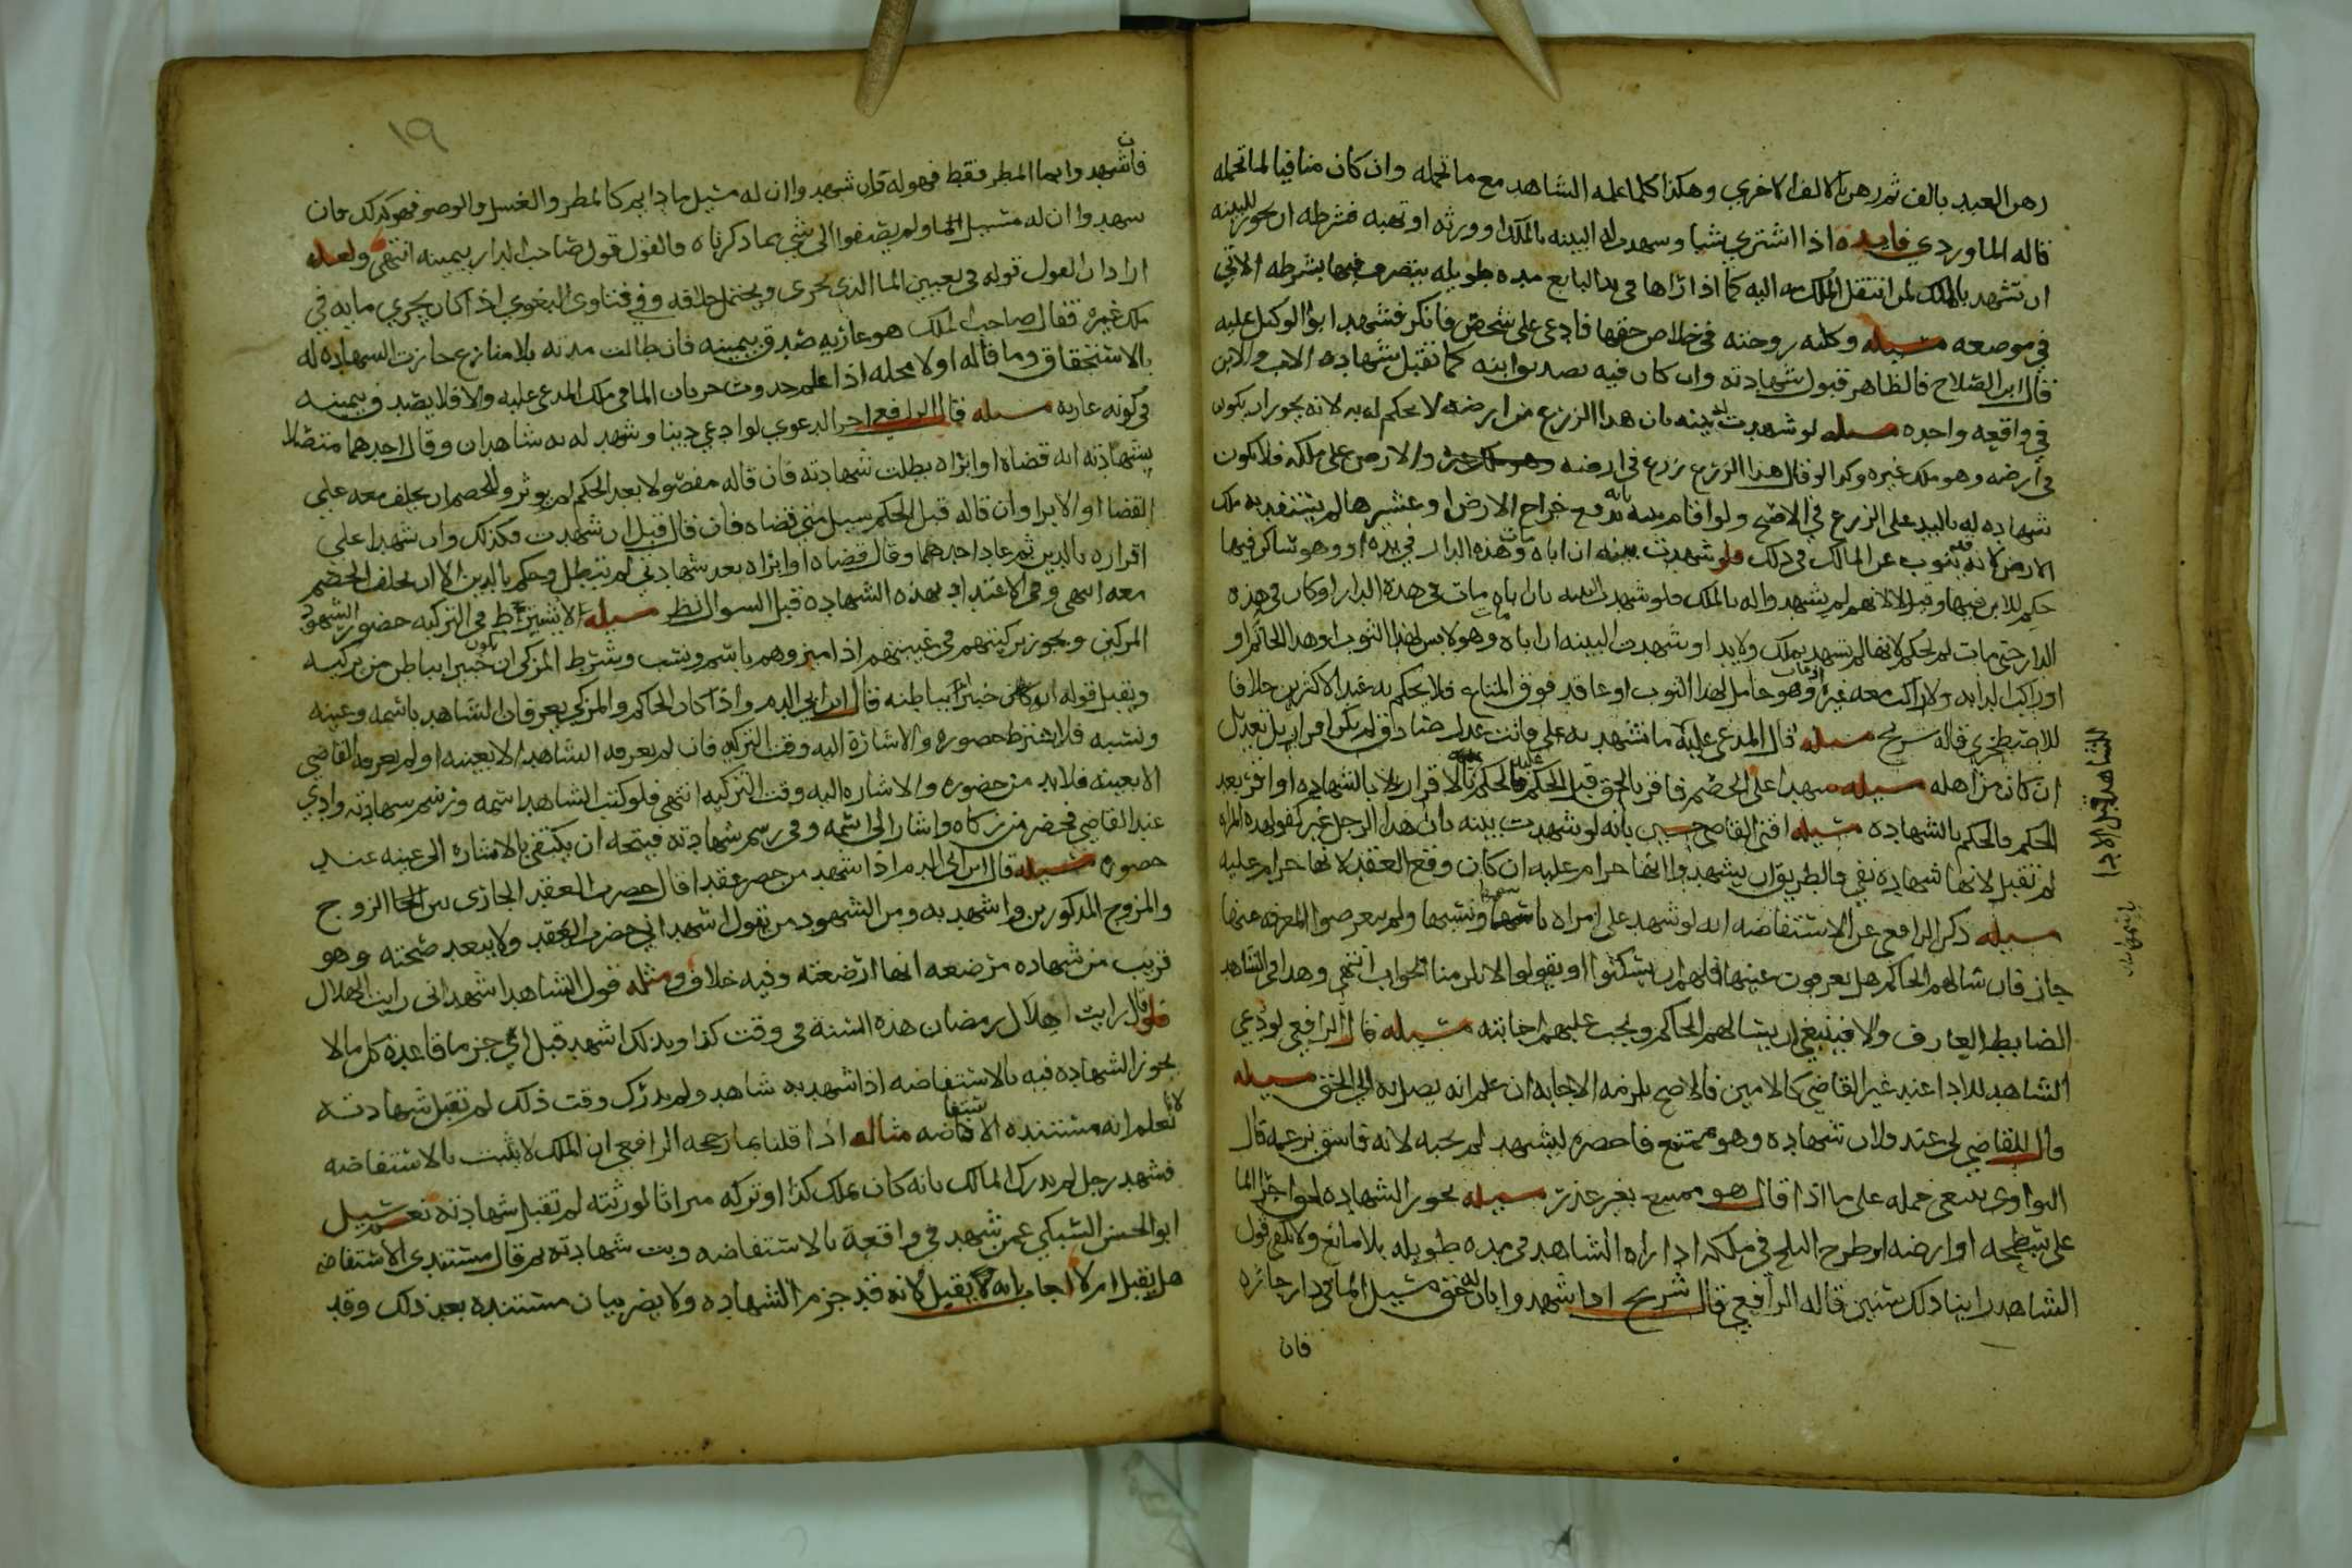 رهن العبد بالف ثم رهن بالالف الاخري وهكذا كلما علمه الشاهد مع ما تحمله وان كان منافيا لما تحمله
قاله الماوردي فايده اذا اشتري شيا وسهدت له البينه بالملك او ورثه او تهبه فشرطه ان يجوز للبينه
ان تشهد بالملك لمن انتقل الملك منه اليه كما اذا راها في يد البايع مده طويله يتصرف فيها بشرطه الاتي
في موصعه مسيله وكلته زوجته في خلاص حقها فادعي علي شخص فانكر فشهد ابو الوكيل عليه
قال ابن الصلاح فالظاهر قبول شهادته وان كان فيه تصديق ابنه كما تقبل شهاده الاب والابن
في واقعه واحده مسيله لو شهدت بينه بان هدا الزرع من ارضه لا يحكم له به لانه يجوز ان يكون
في أرضه وهو ملك غيره وكدا لو قال هذا الزرع زرع في ارضه والارض علي ملكه فلا يكون
شهاده له باليد علي الزرع في الاصح ولو اقام بينه بانه يدفع خراج الارض او عشرها لم يستفد به ملك
الارض لانه قد ينوب عن المالك في ذلك فلو شهدت بينه ان اباه مات وهذه الدار في يده او وهو ساكن فيها
حكم للابن فيها وقيل لا لانهم لم يشهدوا له بالملك فلو شهدت البينه بان اباه مات في هذه الدار او كان في هذه
الدار حتي مات لم يحكم لانها لم تشهد بملك ولا يد او شهدت البينه ان اباه مات وهو لابس لهذا الثوب او هدا الخاتم او
او راكب لدابه ولا راكب معه غيره او مات وهو حامل لهذا الثوب او قاعد فوق المتاع فلا يحكم به عند الاكثرين خلافا
للاصطخري قاله شريح مسيله قال المدعي عليه ما تشهد به علي فانت عدل صادق لم يكن اقرار بل تعديل
ان كان من اهله مسيله شهدا علي الخصم فاقر بالحق قبل الحكم عليه فالحكم بالاقرار لا بالشهاده او اقر بعد
الحكم فالحكم بالشهاده مسيله افتي القاضي حسين بانه لو شهدت بينه بان هذا الرجل غير كفو لهده المراه
لم تقبل لانها شهاده نفي فالطريق ان يشهدوا انها حرام عليه ان كان وقع العقد لانها حرام عليه
مسيله ذكر الرافعي عن الاستفاضه انه لو شهد علي امراه باسمها ونسبها ولم يتعرضوا لمعرفه عينها
جاز فان سالهم الحاكم هل تعرفون عينها فلهم ان يسكتوا او يقولوا لا يلزمنا الجواب انتهي وهدا في الشاهد
الضابط العارف والا فينبغي ان يسالهم الحاكم ويجب عليهم اجابته مسيله قال الرافعي لو دعي
الشاهد للادا عند غير القاضي كالامين فالاصح يلزمه الاجابه ان علم انه يصل به الي الحق مسيله
قال للقاضي لي عند فلان شهاده وهو ممتنع فاحضره ليشهد لم يجبه لانه فاسق بزعمه قال
النواوي ينبغي حمله علي ما اذا قال هو ممتنع بغير عذر مسيله يجوز الشهاده لحق اجرا الما
علي سطحه او ارضه او طرح الثلج في ملكه اذا راه الشاهد في مده طويله بلا مانع ولا يكفي قول
الشاهد راينا ذلك سنين قاله الرافعي قال شريح اذا شهدوا بان له حق مسيل الما في دار جاره
فان
للشاهد قبل الادا
١٩
فان شهدوا بما المطر فقط فهو له فان شهدوا ان له مسيل ما دايم كالمطر والغسل والوضو فهو كذلك فان
سهدوا ان له مسيل الما ولم يضيفوا الي شي مما دكرناه فالقول قول صاحب الدار بيمينه انتهي ولعله
اراد ان القول قوله في تعيين الما الذي يجري ويحتمل خلافه وفي فتاوي البغوي اذا كان يجري مايه في
ملك غيره فقال صاحب الملك هو عاريه صدق بيمينه فان طالت مدته بلا منازع جازت الشهاده له
بالاستحقاق وما قاله اولا محله اذا علم حدوث جريان الما في ملك المدعي عليه والا فلا يصدق بيمينه
في كونه عاريه مسيله قال الرافعي اخر الدعوي لو ادعي دينا وشهد له به شاهدان وقال احدهما متصلا
بشهادته انه قضاه او ابراه بطلت شهادته فان قاله مفصولا بعد الحكم لم يوثر وللخصم ان يحلف معه علي
القضا او الابرا وان قاله قبل الحكم سيل متي قضاه فان قال قبل ان شهدت فكذلك وان شهدا علي
اقراره بالدين ثم عاد احدهما وقال قضاه او ابراه بعد شهادتي لم تبطل وحكم بالدين الا ان يحلف الخصم
معه انتهي وفي الاعتداد بهذه الشهاده قبل السوال نظر مسيله لا يشترط في التزكيه حضور الشهود
المزكين ويجوز تزكيتهم في غيبتهم اذا ميزوهم باسم ونسب ويشترط المزكي ان يكون خبيرا بباطن من يزكيه
ويقبل قوله انه كان خبيرا بباطنه قال ابن ابي الدم واذا كان الحاكم والمزكي يعرفان الشاهد باسمه وعينه
ونسبه فلا يشترط حضوره والاشارة اليه وقت التزكيه فان لم يعرفه الشاهد الا بعينه او لم يعرفه القاضي
الا بعينه فلا بد من حضوره والاشاره اليه وقت التزكيه انتهي فلو كتب الشاهد اسمه ورسم سهادته وادي
عند القاضي فحضر من زكاه واشار الي اسمه وفي رسم شهادته فيتجه ان يكتفي بالاشاره الي عينه عند
حضوره مسيله قال ابن ابي الدم اذا شهد من حضر عقدا قال حضرت العقد الجاري بين الزوج
والمزوج المذكورين واشهد به ومن الشهود من يقول اشهد اني حضرت العقد ولا يبعد صحته وهو
قريب من شهاده مرضعه انها ارضعته وفيه خلاف ومثله قول الشاهد اشهد اني رايت الهلال
فلو قال رايت هلال رمضان هذه السنة في وقت كذا وبذلك اشهد قبل جزما قاعده كل ما لا
يجوز الشهاده فيه بالاستفاضه اذا شهد به شاهد ولم يدرك وقت ذلك لم تقبل شهادته
لانا نعلم انه مستنده الاستفاضه مثاله اذا قلنا بما رجحه الرافعي ان الملك لا يثبت بالاستفاضه
فشهد رجل لم يدرك المالك بانه كان يملك كذا او تركه ميراثا لورثته لم تقبل شهادته نعم سيل
ابو الحسن السبكي عمن شهد في واقعة بالاستفاضه وبت شهادته ثم قال مستندي الاستفاضه
هل يقبل ام لا اجاب بانه لا يقبل لانه قد جزم الشهاده ولا يضر بيان مستنده بعد ذلك وقد